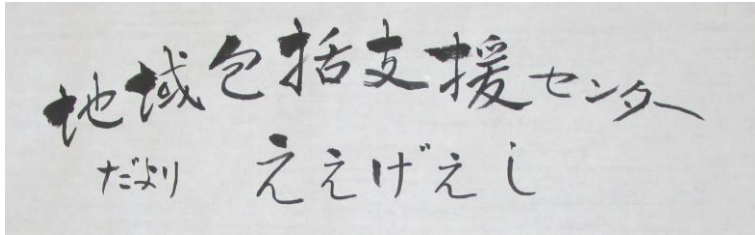 地域包括支援センター
だより ええげえし